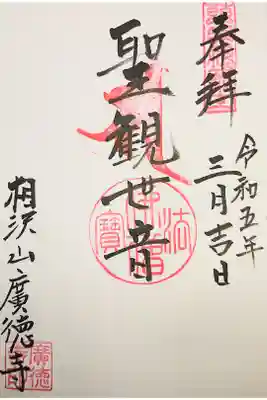 奉拝
令和五年
三月吉日
聖観世音
佛法僧寶
相沢山廣徳寺
廣徳